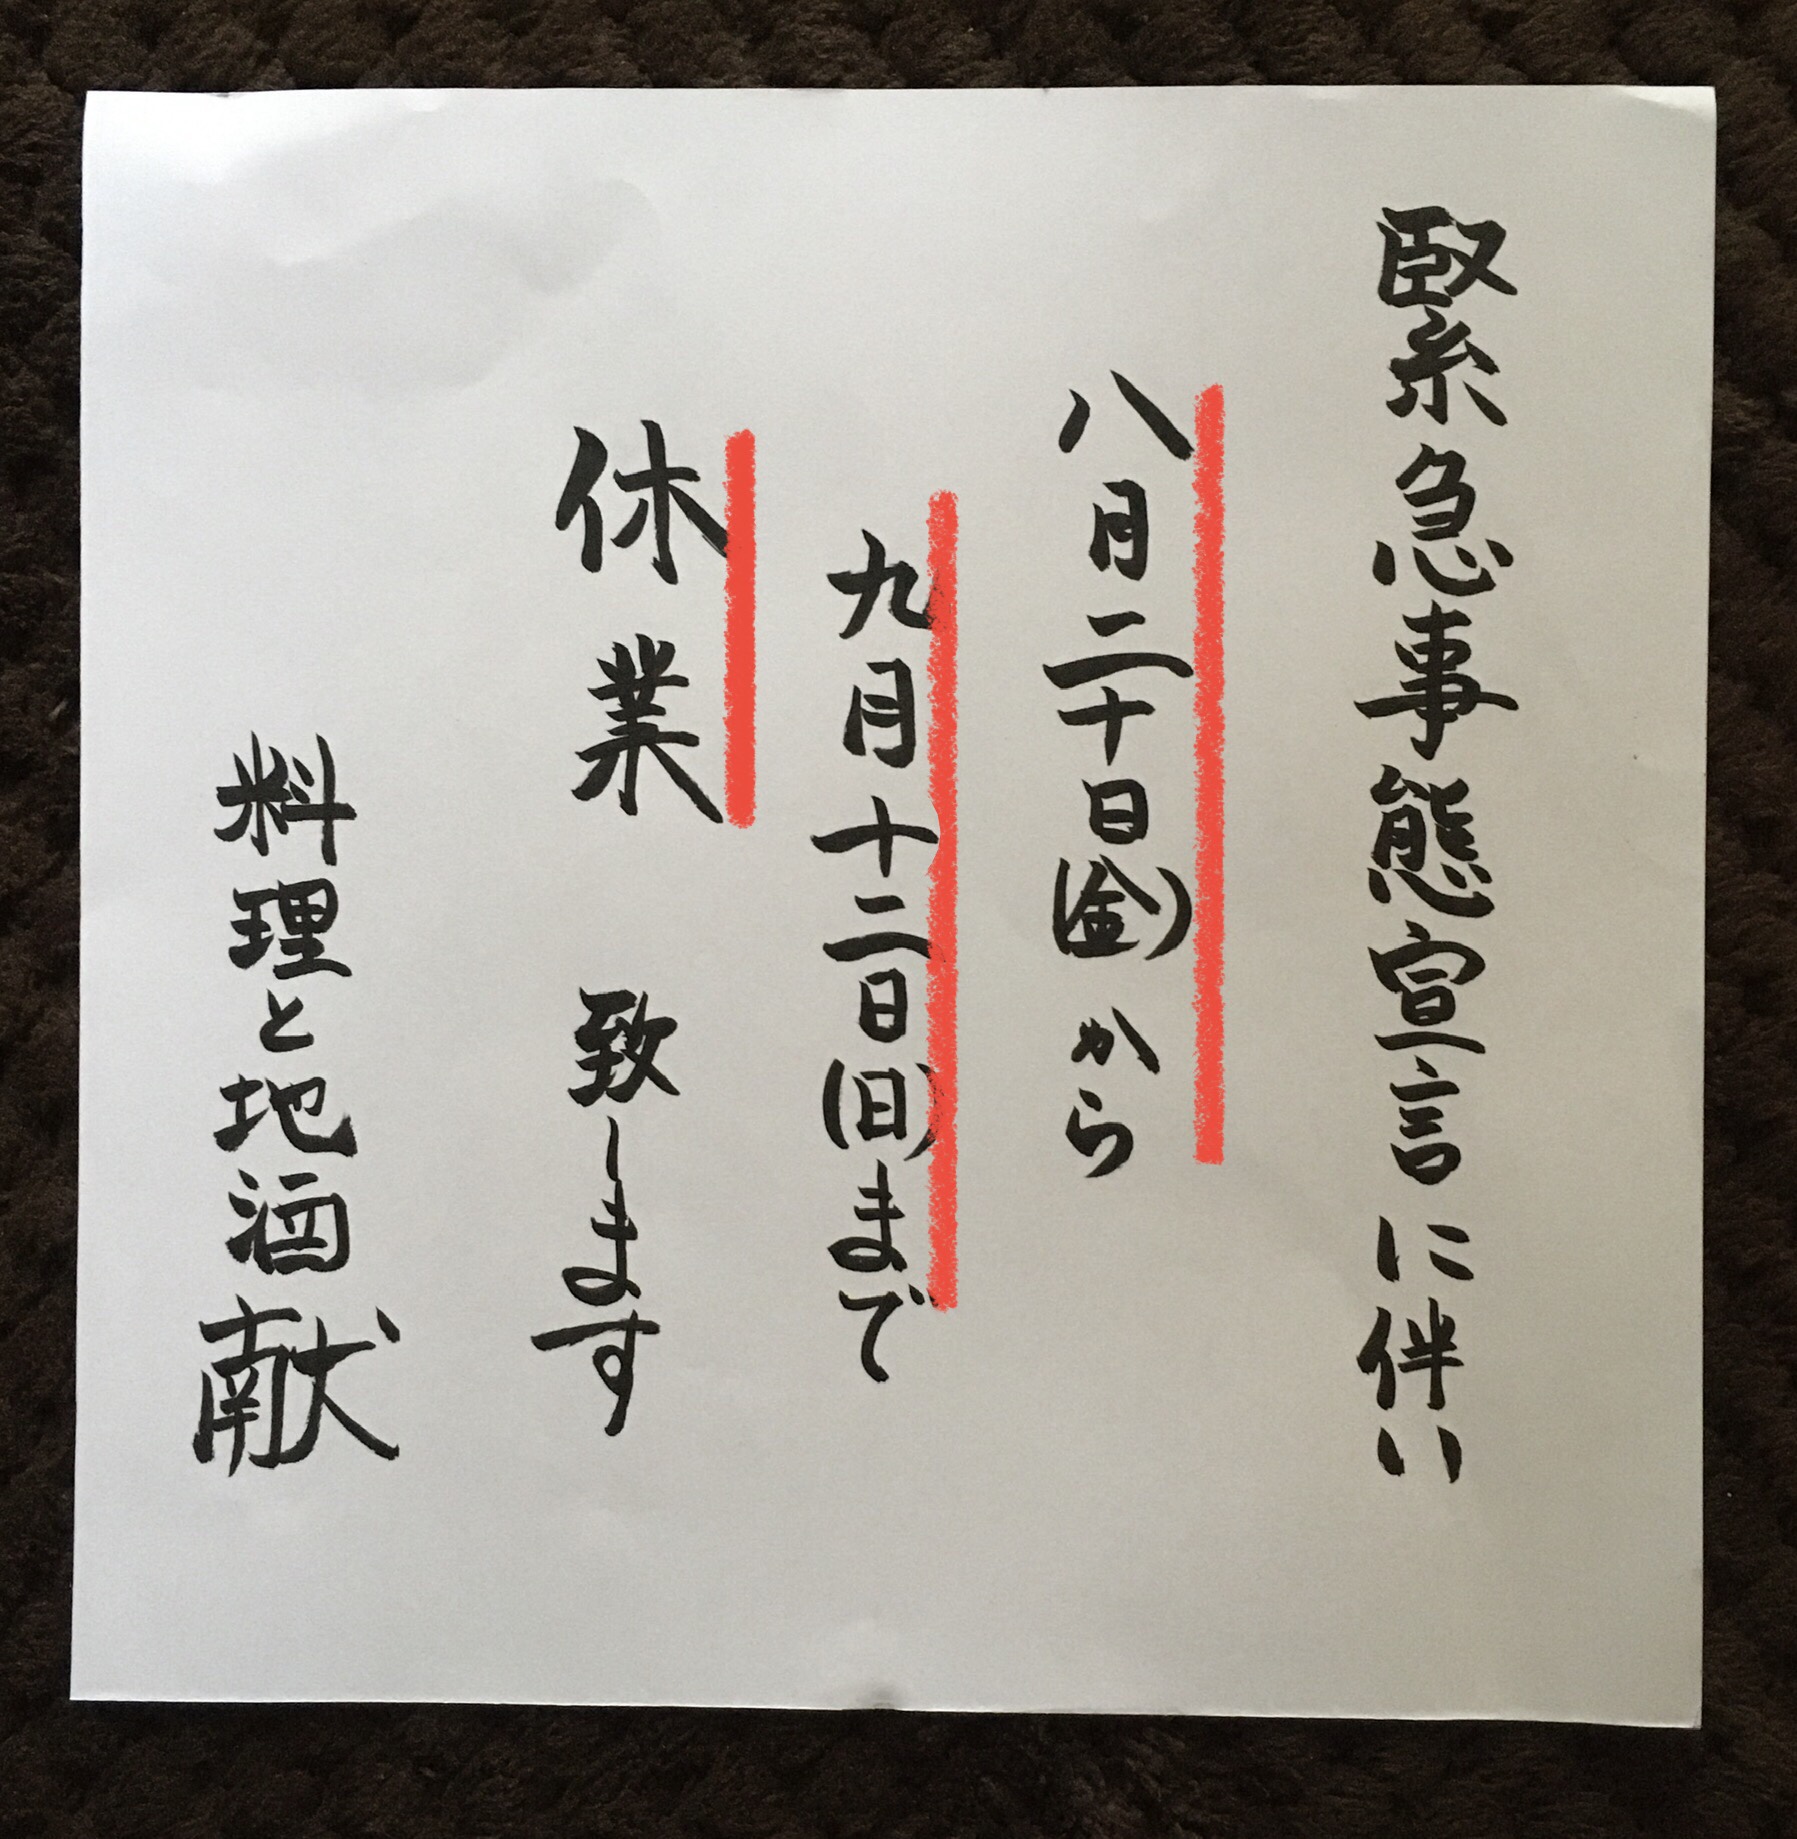 緊急事態宣言に伴い
八月二十日(金)から
九月十二日(日)まで
休業 致します
料理と地酒献